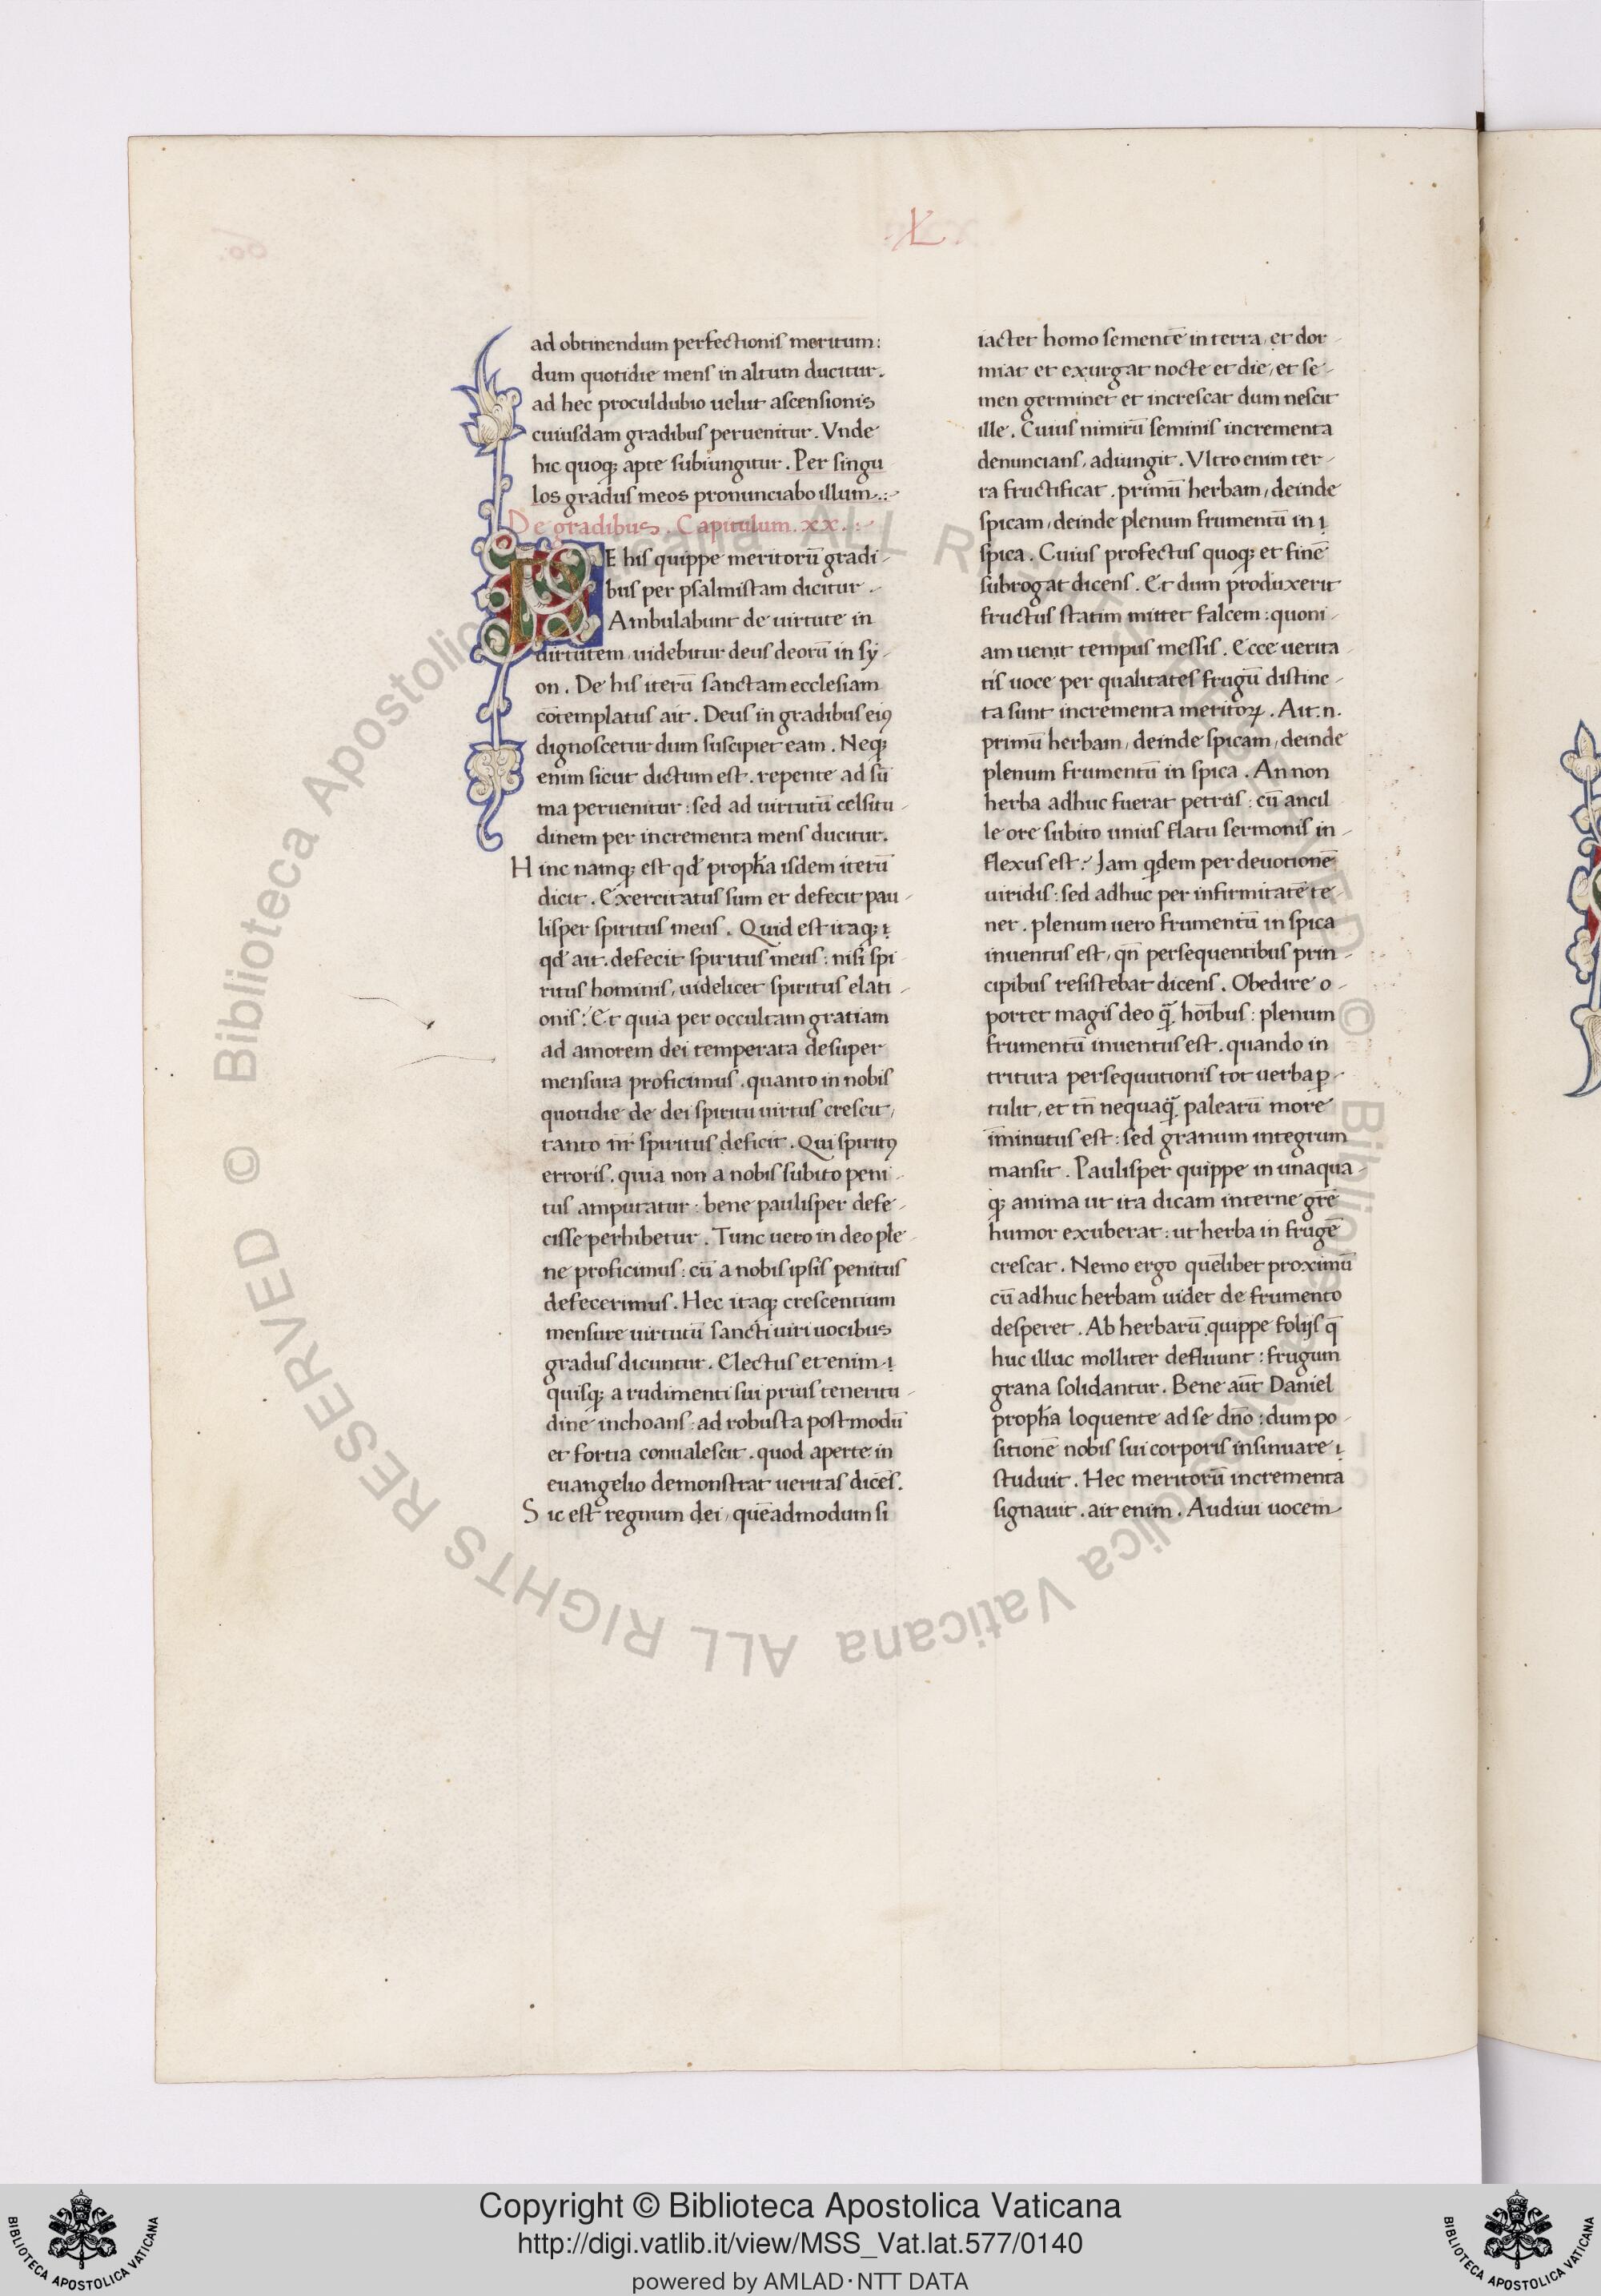 .L.
ad obtinendum perfectionis meritum:
dum quotidie mens in altum ducitur.
ad hec proculdubio uelut ascensionis
cuiusdam gradibus peruenitur. Vnde
hic quoq; apte subiungitur. Per singu
los gradus meos pronunciabo illum.:-
De gradibus. Capitulum. xx.:-
DE his quippe meritorū gradi-
bus per psalmistam dicitur.-
Ambulabunt de uirtute in
uirtutem, uidebitur deus deorū in sy-
on. De his iterū sanctam ecclesiam
cōtemplatus ait. Deus in gradibus eiꝰ
dignoscetur dum suscipiet eam. Neq;
enim sicut dictum est. repente ad sū
ma peruenitur: sed ad uirtutū celsitu-
dinem per incrementa mens ducitur.
Hinc namq; est qđ propħa isdem iterū
dicit. Exercitatus sum et defecit pau
lisper spiritus meus. Quid est itaq; ı
qđ ait. defecit spiritus meus: nisi spi
ritus hominis, uidelicet spiritus elati-
onis? Et quia per occultam gratiam
ad amorem dei temperata desuper
mensura proficimus. quanto in nobis
quotidie de dei spiritu uirtus crescit,
tanto nr̄ spiritus deficit. Qui spiritꝰ
erroris. quia non a nobis subito peni-
tus amputatur: bene paulisper defe-
cisse perhibetur. Tunc uero in deo ple-
ne proficimus: cū a nobis ipsis penitus
defecerimus. Hec itaq; crescentium
mensure uirtutū sancti uiri uocibus
gradus dicuntur. Electus etenim ı
quisq; a rudimenti sui prius teneritu-
dine inchoans: ad robusta postmodū
et fortia conualescit. quod aperte in
euangelio demonstrat ueritas dicēs.
Sic est regnum dei, quēadmodum si
iactet homo sementē in terra, et dor-
miat et exurgat nocte et die, et se-
men germinet et increscat dum nescit
ille. Cuius nimirū seminis incrementa
denuncians, adiungit. Vltro enim ter-
ra fructificat. primū herbam, deinde
spicam, deinde plenum frumentū in ı
spica. Cuius profectus quoq; et finē
subrogat dicens. Et dum produxerit
fructus statim mittet falcem: quoni-
am uenit tempus messis. Ecce uerita-
tis uoce per qualitates frugū distinc-
ta sunt incrementa meritoꝝ. Ait. n.
primū herbam, deinde spicam, deinde
plenum frumentū in spica. An non
herba adhuc fuerat petrus: cū ancil
le ore subito unius flatu sermonis in-
flexus est? Jam qdem per deuotionē
uiridis: sed adhuc per infirmitatē te-
ner. plenum uero frumentū in spica
inuentus est, qn̄ persequentibus prin-
cipibus resistebat dicens. Obedire o-
portet magis deo q̄ hoībus: plenum
frumentū inuentus est. quando in
tritura persequutionis tot uerba ꝑ-
tulit, et tn̄ nequaq̄ palearū more
īminutus est: sed granum integrum
mansit. Paulisper quippe in unaqua-
q; anima ut ita dicam interne gr̄e
humor exuberat: ut herba in frugē
crescat. Nemo ergo quēlibet proximū
cū adhuc herbam uidet de frumento
desperet. Ab herbarū quippe folijs q̄
huc illuc molliter defluunt: frugum
grana solidantur. Bene aūt Daniel
propħa loquente ad se dn̄o: dum po-
sitionē nobis sui corporis insinuare ı
studuit. Hec meritorū incrementa
signauit. ait enim. Audiui uocem
© Biblioteca Apostolica Vaticana ALL RIGHTS RESERVED
Copyright © Biblioteca Apostolica Vaticana
http://digi.vatlib.it/view/MSS_Vat.lat.577/0140
powered by AMLAD·NTT DATA
BIBLIOTECA APOSTOLICA VATICANA
BIBLIOTECA APOSTOLICA VATICANA